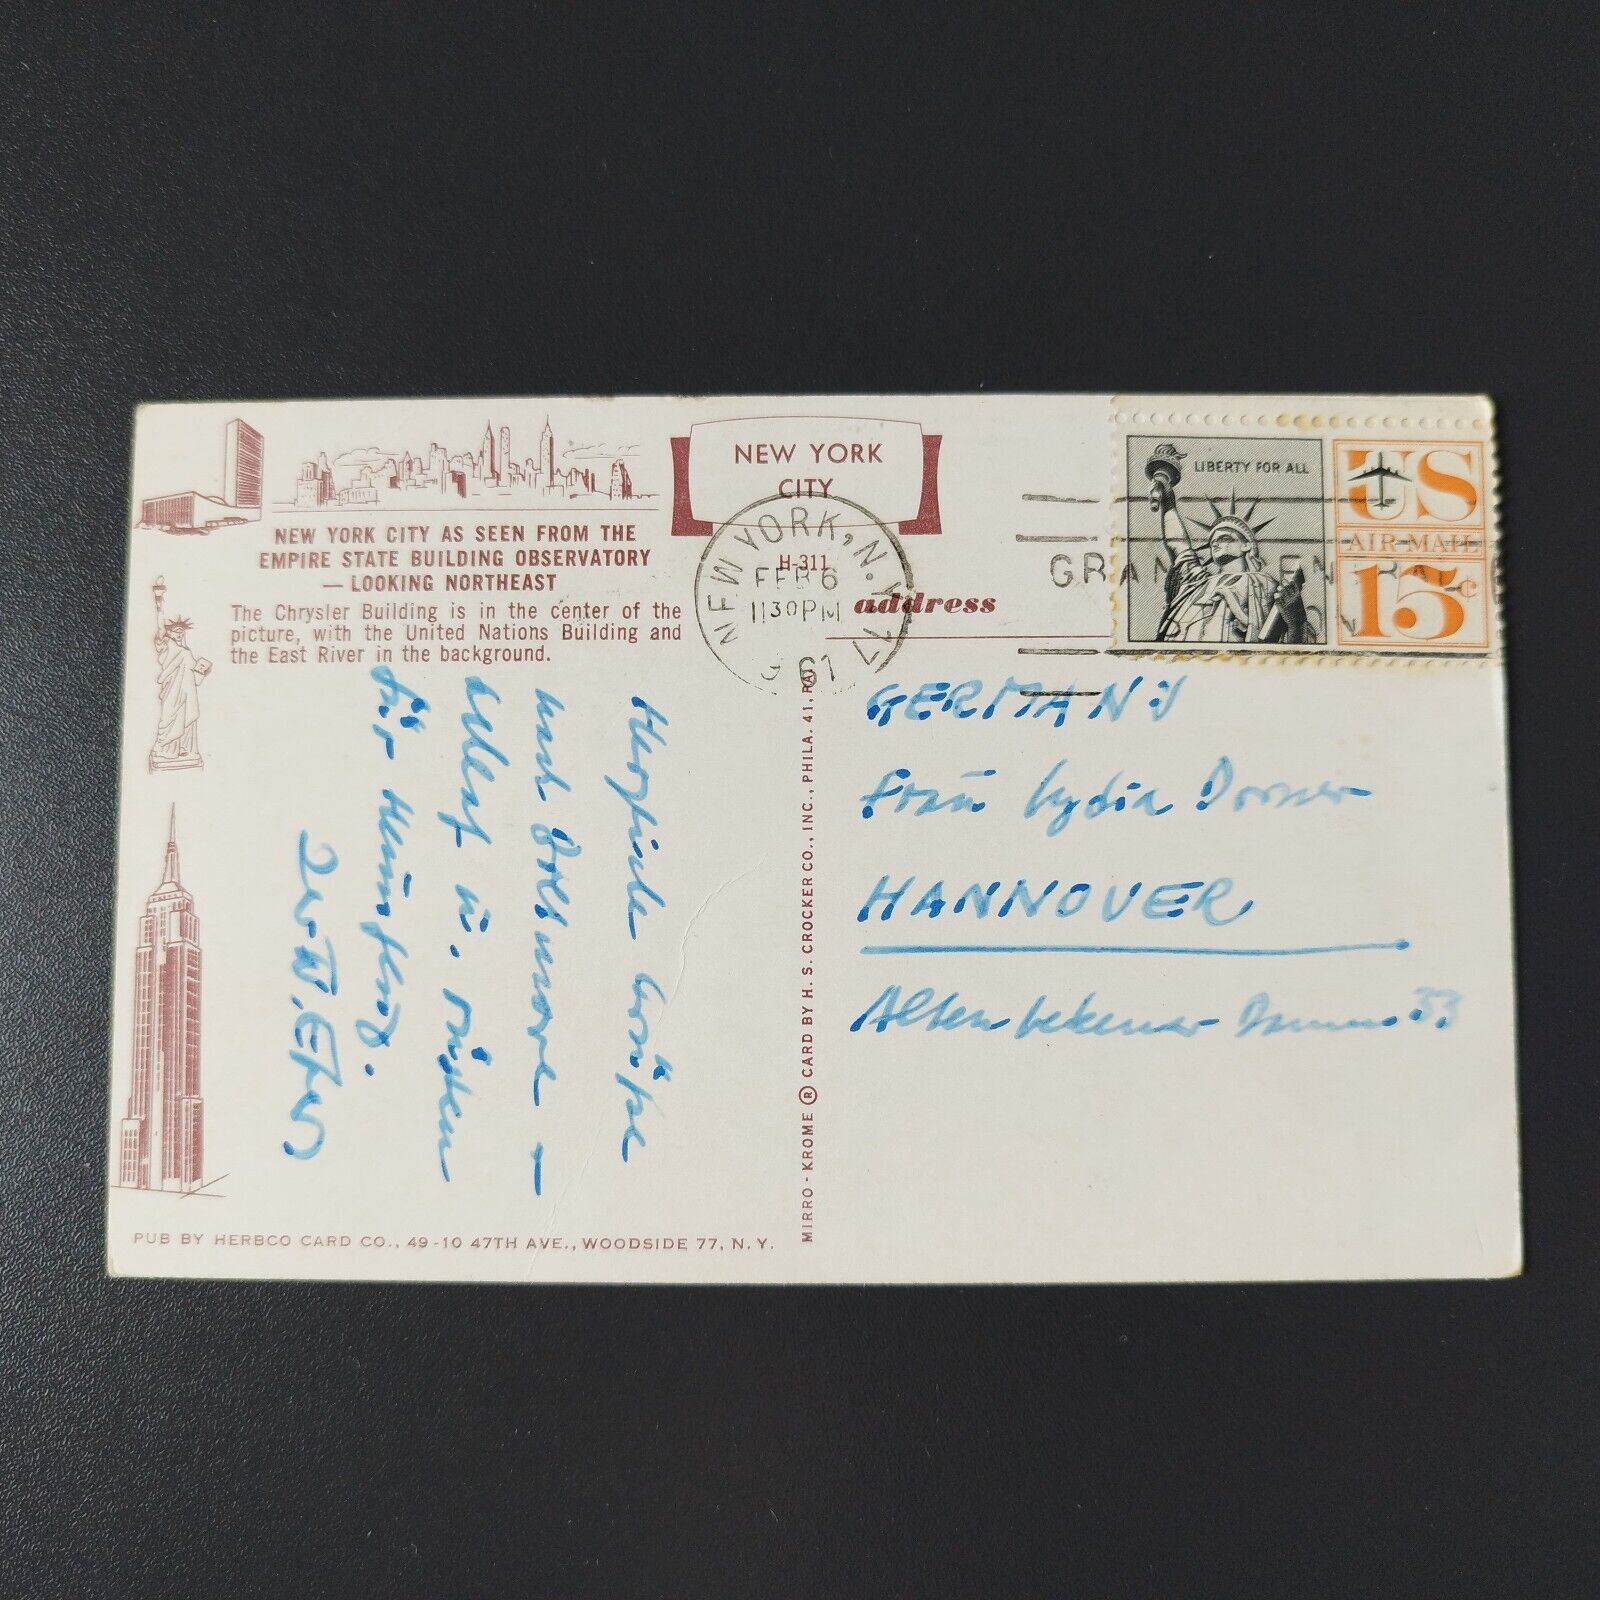 NEW YORK CITY AS SEEN FROM THE
EMPIRE STATE BUILDING OBSERVATORY
— LOOKING NORTHEAST
The Chrysler Building is in the center of the
picture, with the United Nations Building and
the East River in the background.
NEW YORK
CITY
H-311
address
NEW YORK, N.Y.
FEB 6
1130 PM
61
GRAND CENTRAL
LIBERTY FOR ALL
US
AIR MAIL
15¢
Herzliche Grüße
nach Baltimore –
u.
für
GERMANY
Frau Lydia Dorner
HANNOVER
Altenbekener Damm 33
MIRRO-KROME ® CARD BY H. S. CROCKER CO., INC., PHILA. 41, PA.
PUB BY HERBCO CARD CO., 49-10 47TH AVE., WOODSIDE 77, N. Y.